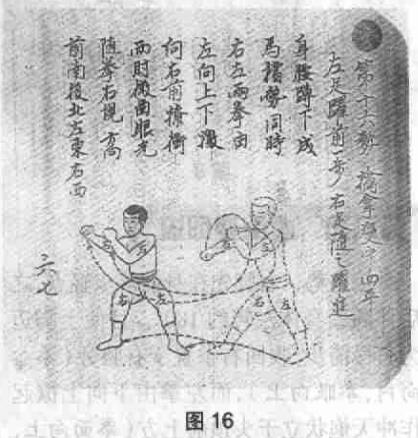 第十六動
左足躍前一步右足隨之躍進
身腰蹲下成
馬襠勢同時
右左兩拳由
左向上下
向右前橫衝
兩肘微曲眼光
隨拳右視
前南後北左東右西
六七
左
左
右
左
左
左
右
左
图 16